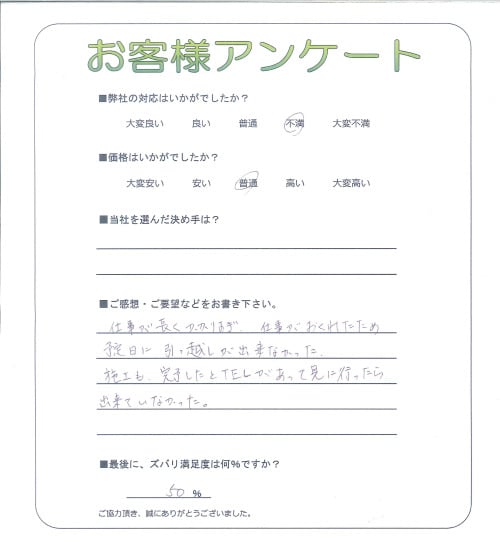 お客様アンケート
■弊社の対応はいかがでしたか？
大変良い 良い 普通 不満 大変不満
■価格はいかがでしたか？
大変安い 安い 普通 高い 大変高い
■当社を選んだ決め手は？
■ご感想・ご要望などをお書き下さい。
仕事が長くかかりすぎ、仕事がおくれたため
予定日に引っ越しが出来なかった、
施工も、完了したとTELがあって見に行ったら
出来ていなかった。
■最後に、ズバリ満足度は何％ですか？
50 ％
ご協力頂き、誠にありがとうございました。